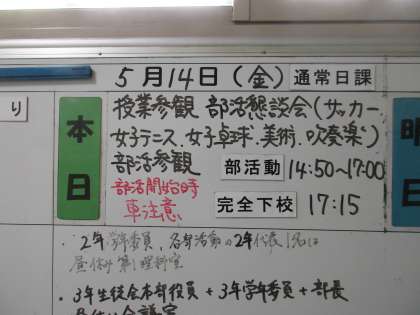 5月14日(金) 通常日課
り
本日
授業参観 部活懇談会(サッカー
女子テニス、女子卓球、美術、吹奏楽)
部活参観 部活動 14:50~17:00
部活開始時
車注意 完全下校 17:15
明日
・2年学年委員、各部活動の2年代表1名は
昼休み 第1理科室
・3年生徒会本部役員+3年学年委員+部長